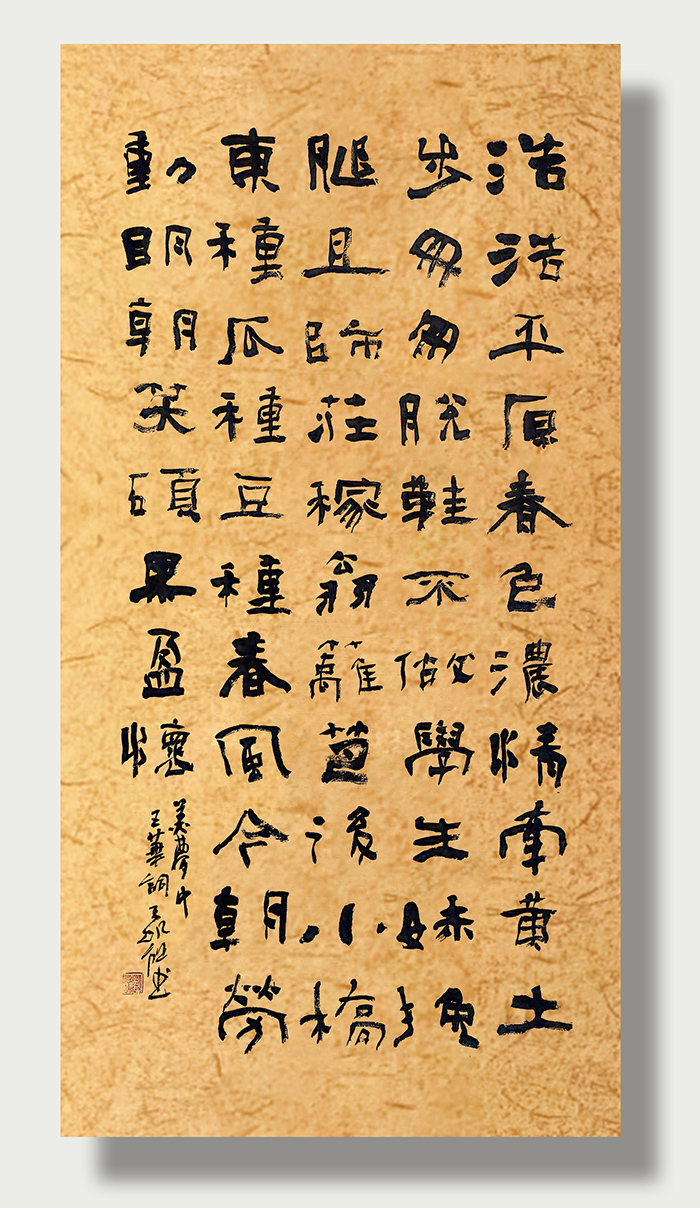 浩浩平原春色濃情牽黄土
步匆匆脱鞋不做學生妹挽
腿且師莊稼翁籬笆後小橋
東種瓜種豆種春風今朝勞
動明朝笑碩果盈懷
美夢中
王華詞王書